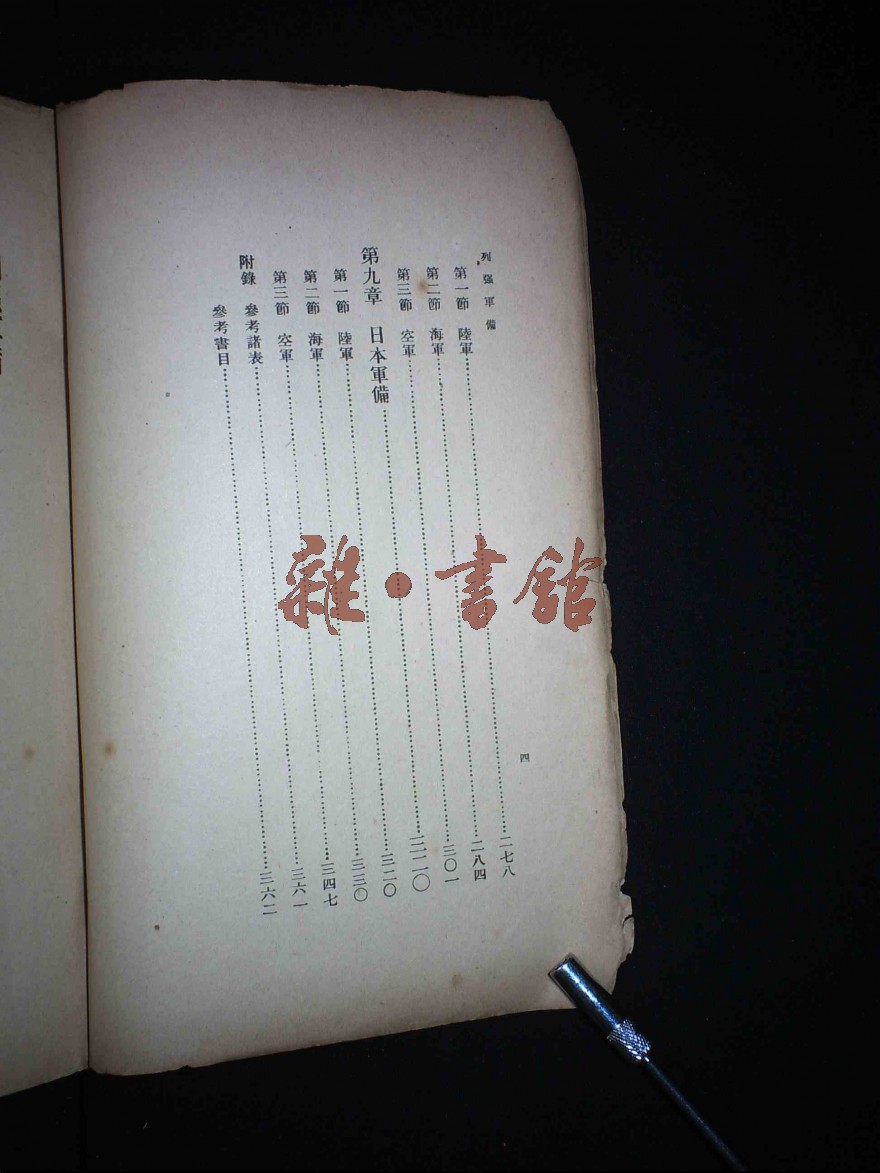 列強軍備
四
第一節 陸軍……二七八
第二節 海軍……二八四
第三節 空軍……三〇一
第九章 日本軍備……三二〇
第一節 陸軍……三二〇
第二節 海軍……三三〇
第三節 空軍……三四七
附錄 參考諸表……三六一
參考書目……三六二
雜·書館